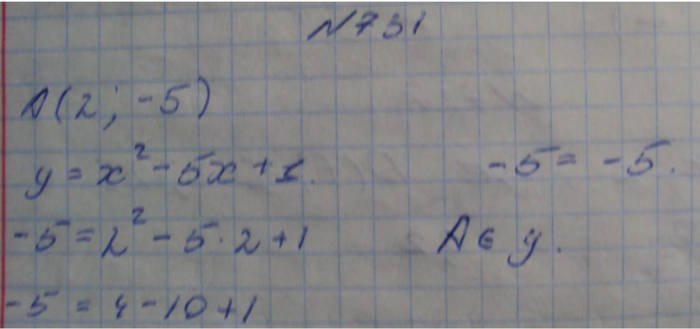 №731
A(2; -5)
y = x² - 5x + 1.
-5 = 2² - 5·2 + 1
-5 = 4 - 10 + 1
-5 = -5.
A ∈ y.